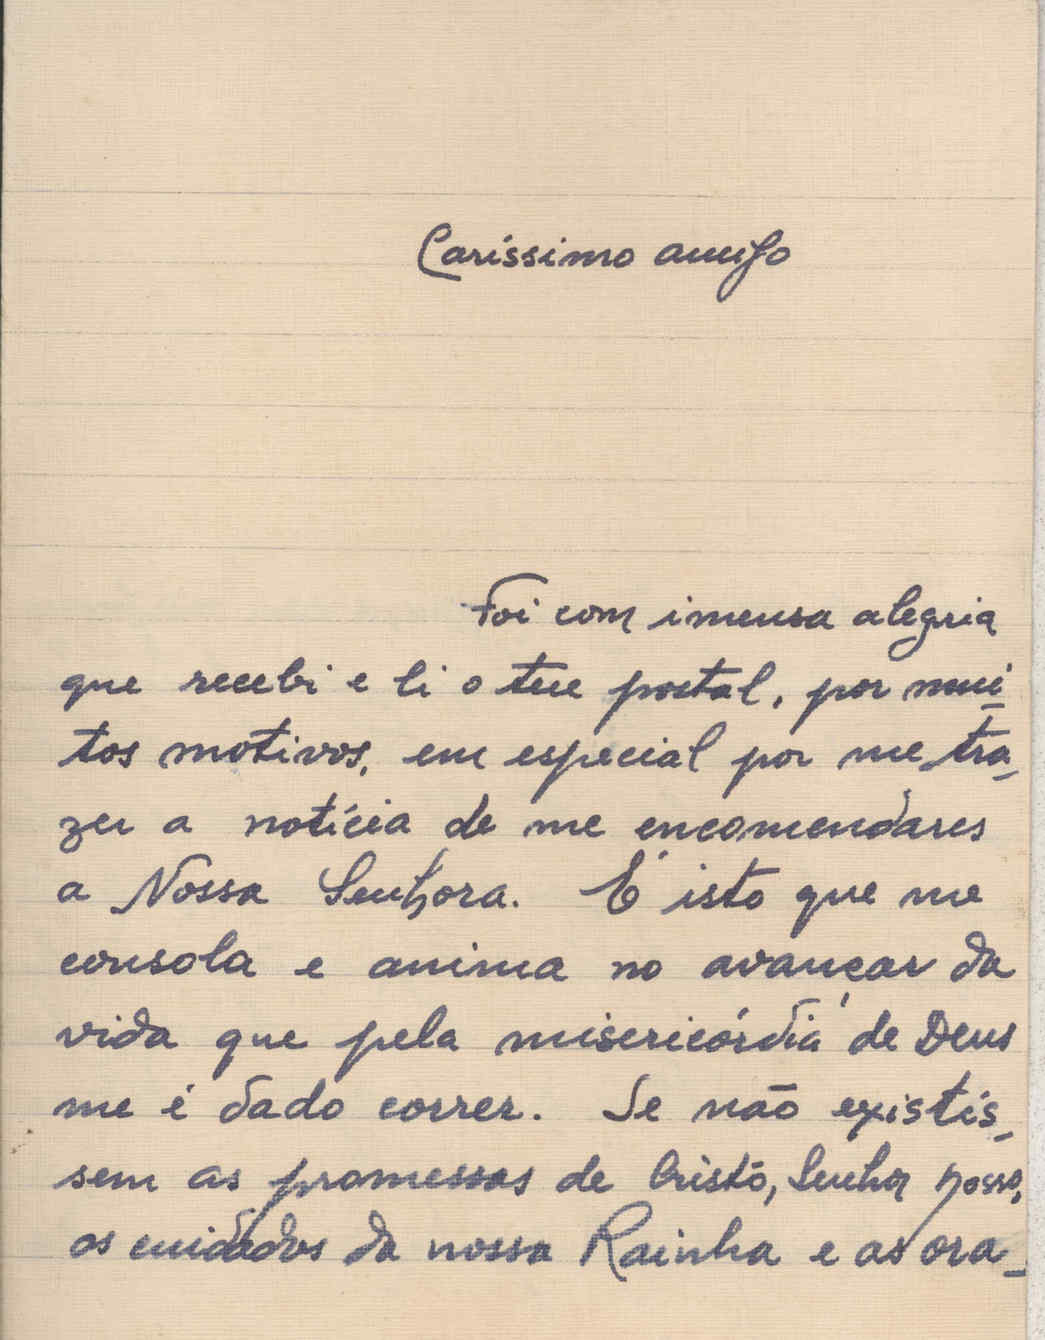 Caríssimo amigo
Foi com imensa alegria
que recebi e li o teu postal, por mui-
tos motivos, em especial por me tra-
zer a notícia de me encomendares
a Nossa Senhora. É isto que me
consola e anima no avançar da
vida que pela misericórdia de Deus
me é dado correr. Se não existis-
sem as promessas de Cristo, Senhor nosso,
os cuidados da nossa Rainha e as ora-